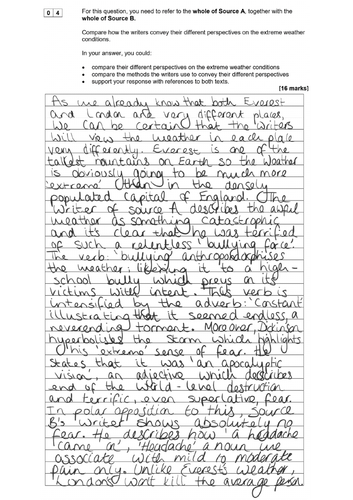 0 4
For this question, you need to refer to the whole of Source A, together with the
whole of Source B.
Compare how the writers convey their different perspectives on the extreme weather
conditions.
In your answer, you could:
• compare their different perspectives on the extreme weather conditions
• compare the methods the writers use to convey their different perspectives
• support your response with references to both texts.
[16 marks]
As we already know that both Everest
and London are very different places,
we can be certain that the writers
will view the weather in each place
very differently. Everest is one of the
tallest mountains on Earth so the weather
is obviously going to be much more
'extreme' than in the densely
populated capital of England. The
writer of source A describes the awful
weather as something catastrophic
and it's clear that he was terrified
of such a relentless 'bullying force'.
The verb: 'bullying' anthropomorphises
the weather: likening it to a high-
school bully which preys on its
victims with intent. This verb is
intensified by the adverb: 'constant'
illustrating that it seemed endless, a
neverending torment. Moreover, Dickinson
hyperbolises the storm which highlights
his 'extreme' sense of fear. He
states that it was 'an apocalyptic
vision', an adjective which describes
end of the world-level destruction
and terrific, even superlative, fear.
In polar opposition to this, Source
B's writer shows absolutely no
fear. He describes how 'a headache
came on', 'Headache' a noun we
associate with mild to moderate
pain only. Unlike Everest's weather,
London's won't kill the average person